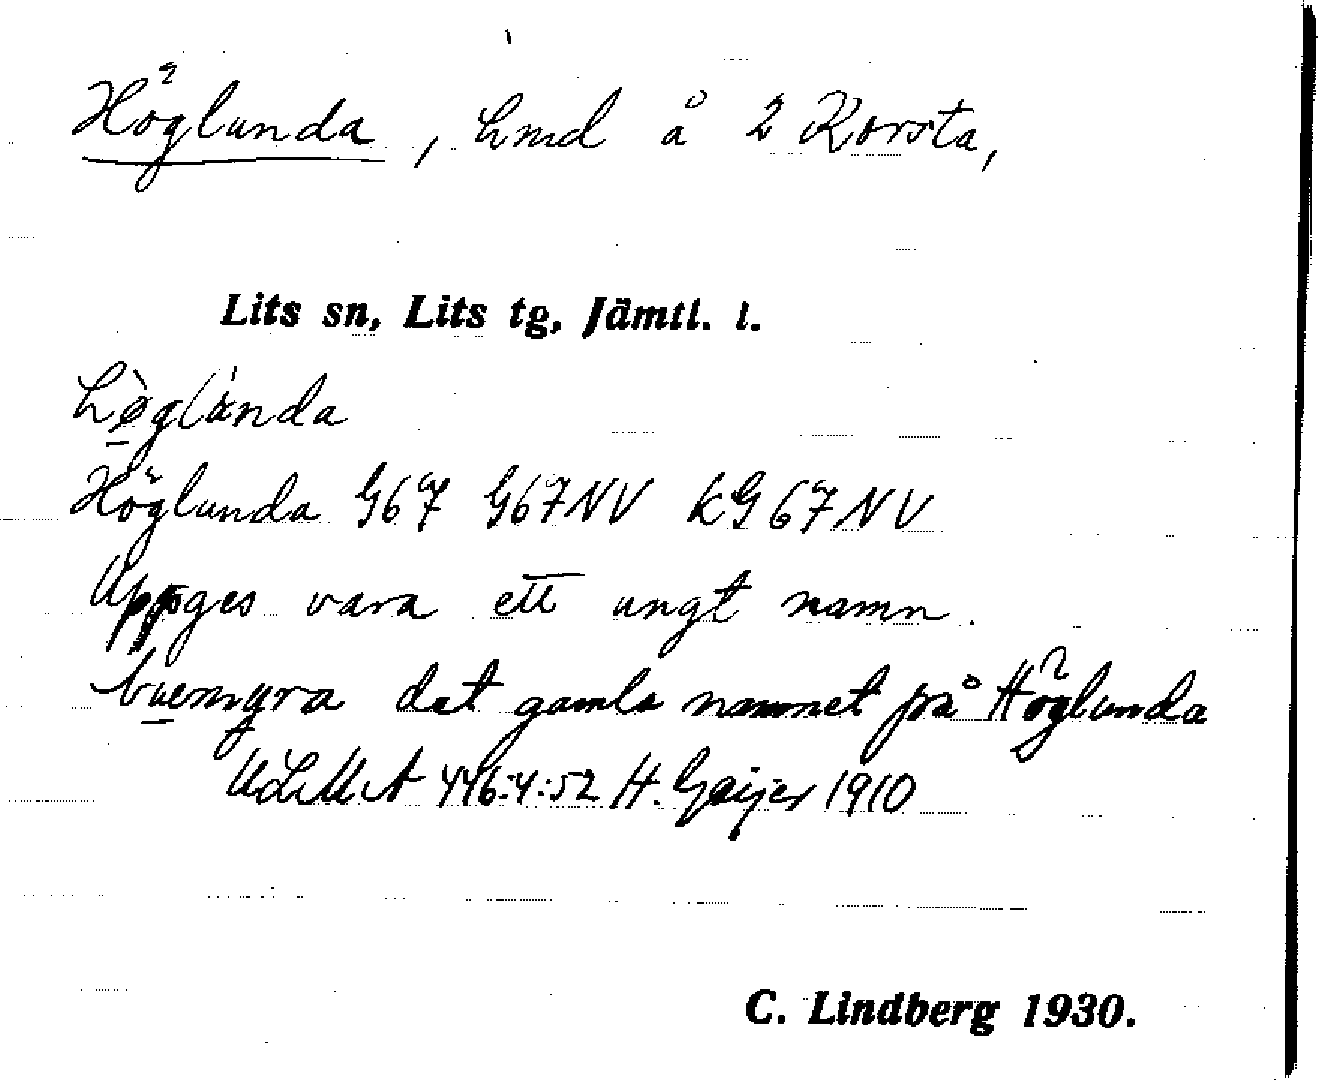 Höglunda, hmd å 2 Korsta,
Lits sn, Lits tg, Jämtl. l.
hø̀glánda
Höglunda G67 G67NV kG67NV
Uppges vara ett ungt namn.
buemyra det gamla namnet på Höglunda
ULMA 446:4:52 H. Geijer 1910
C. Lindberg 1930.